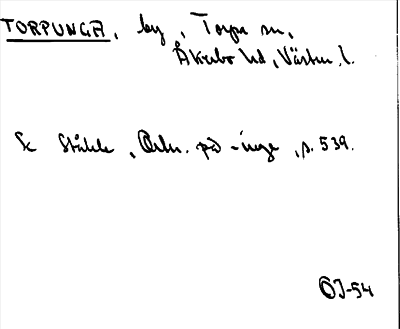 TORPUNGA, by, Torpa sn,
Åkerbo hd, Västm. l.
Se Ståhle, Ortn. på -inge, s. 539.
OJ-54